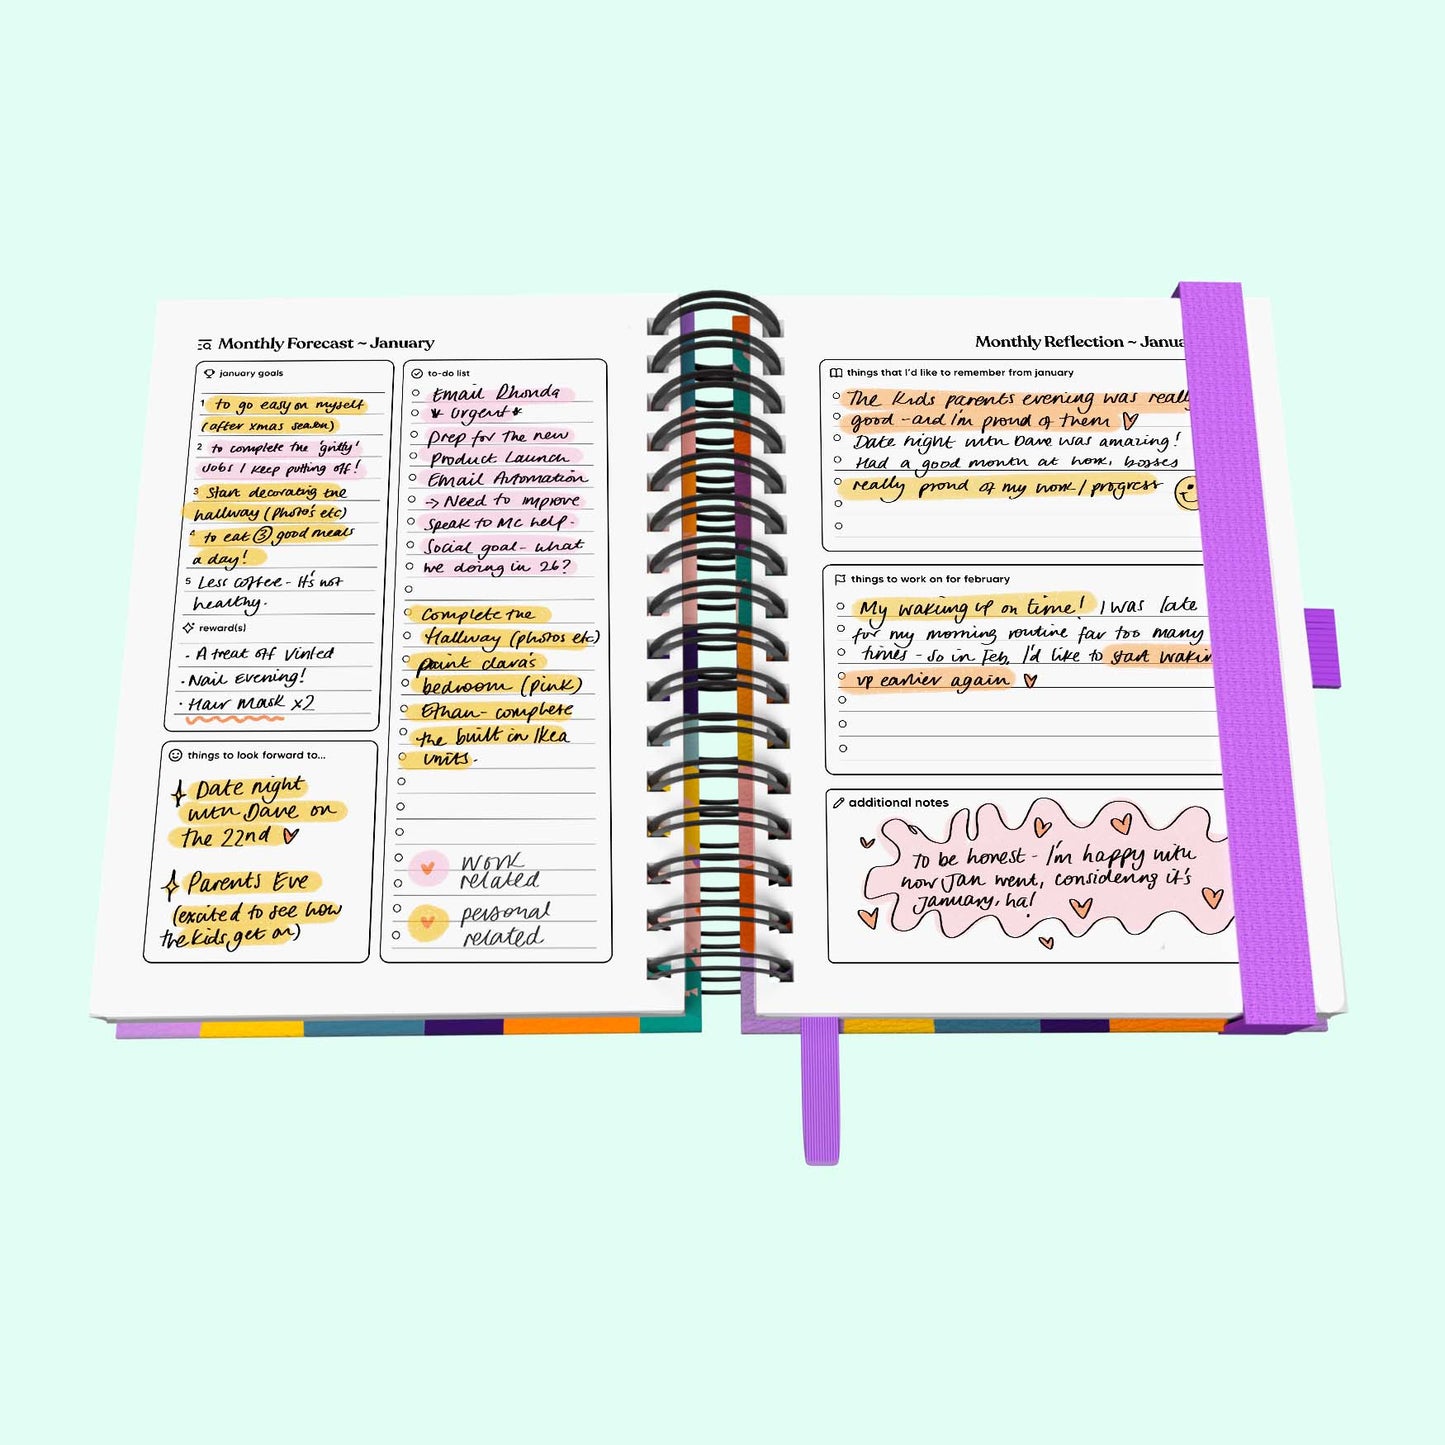 Monthly Forecast ~ January
january goals
1 to go easy on myself
(after xmas season)
2 to complete the 'gritty'
jobs I keep putting off!
3 Start decorating the
hallway (photo's etc)
4 to eat 3 good meals
a day!
5 Less coffee - It's not
healthy.
reward(s)
· A treat off Vinted
· Nail Evening!
· Hair mask x2
things to look forward to...
Date night
with Dave on
the 22nd
Parents Eve
(excited to see how
the kids get on)
to-do list
Email Rhonda
* Urgent *
Prep for the new
Product Launch
Email Automation
→ Need to improve
Speak to MC help.
Social goal - what
we doing in 26?
Complete the
Hallway (photos etc)
paint clara's
bedroom (pink)
Ethan - complete
the built in Ikea
units.
work
related
personal
related
Monthly Reflection ~ Janua
things that I'd like to remember from january
The Kids parents evening was really
good - and I'm proud of them
Date night with Dave was amazing!
Had a good month at work, bosses
really proud of my work / progress
things to work on for february
My waking up on time! I was late
for my morning routine far too many
times - so in Feb, I'd like to start wakin
up earlier again
additional notes
To be honest - I'm happy with
how Jan went, considering it's
January, ha!